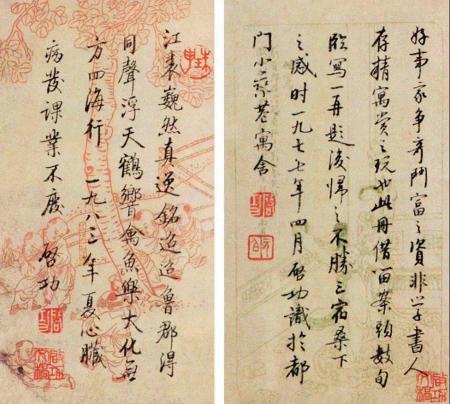 好事家争奇鬥富之資非学書人
存精寓赏之玩也此册借留案頭数旬
临寫一再题後歸之不勝三宿桑下
之感时一九七七年四月啓功識於都
門小乘巷寓舍
江表巍然真逸銘迢迢魯郡得
同聲浮天鶴響禽魚樂大化無
方四海行 一九八三年夏心臟
病發課業不廢 啓功